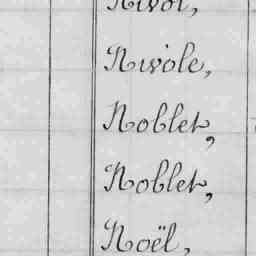 Nivol,
Nivole,
Noblet,
Noblet,
Noël,